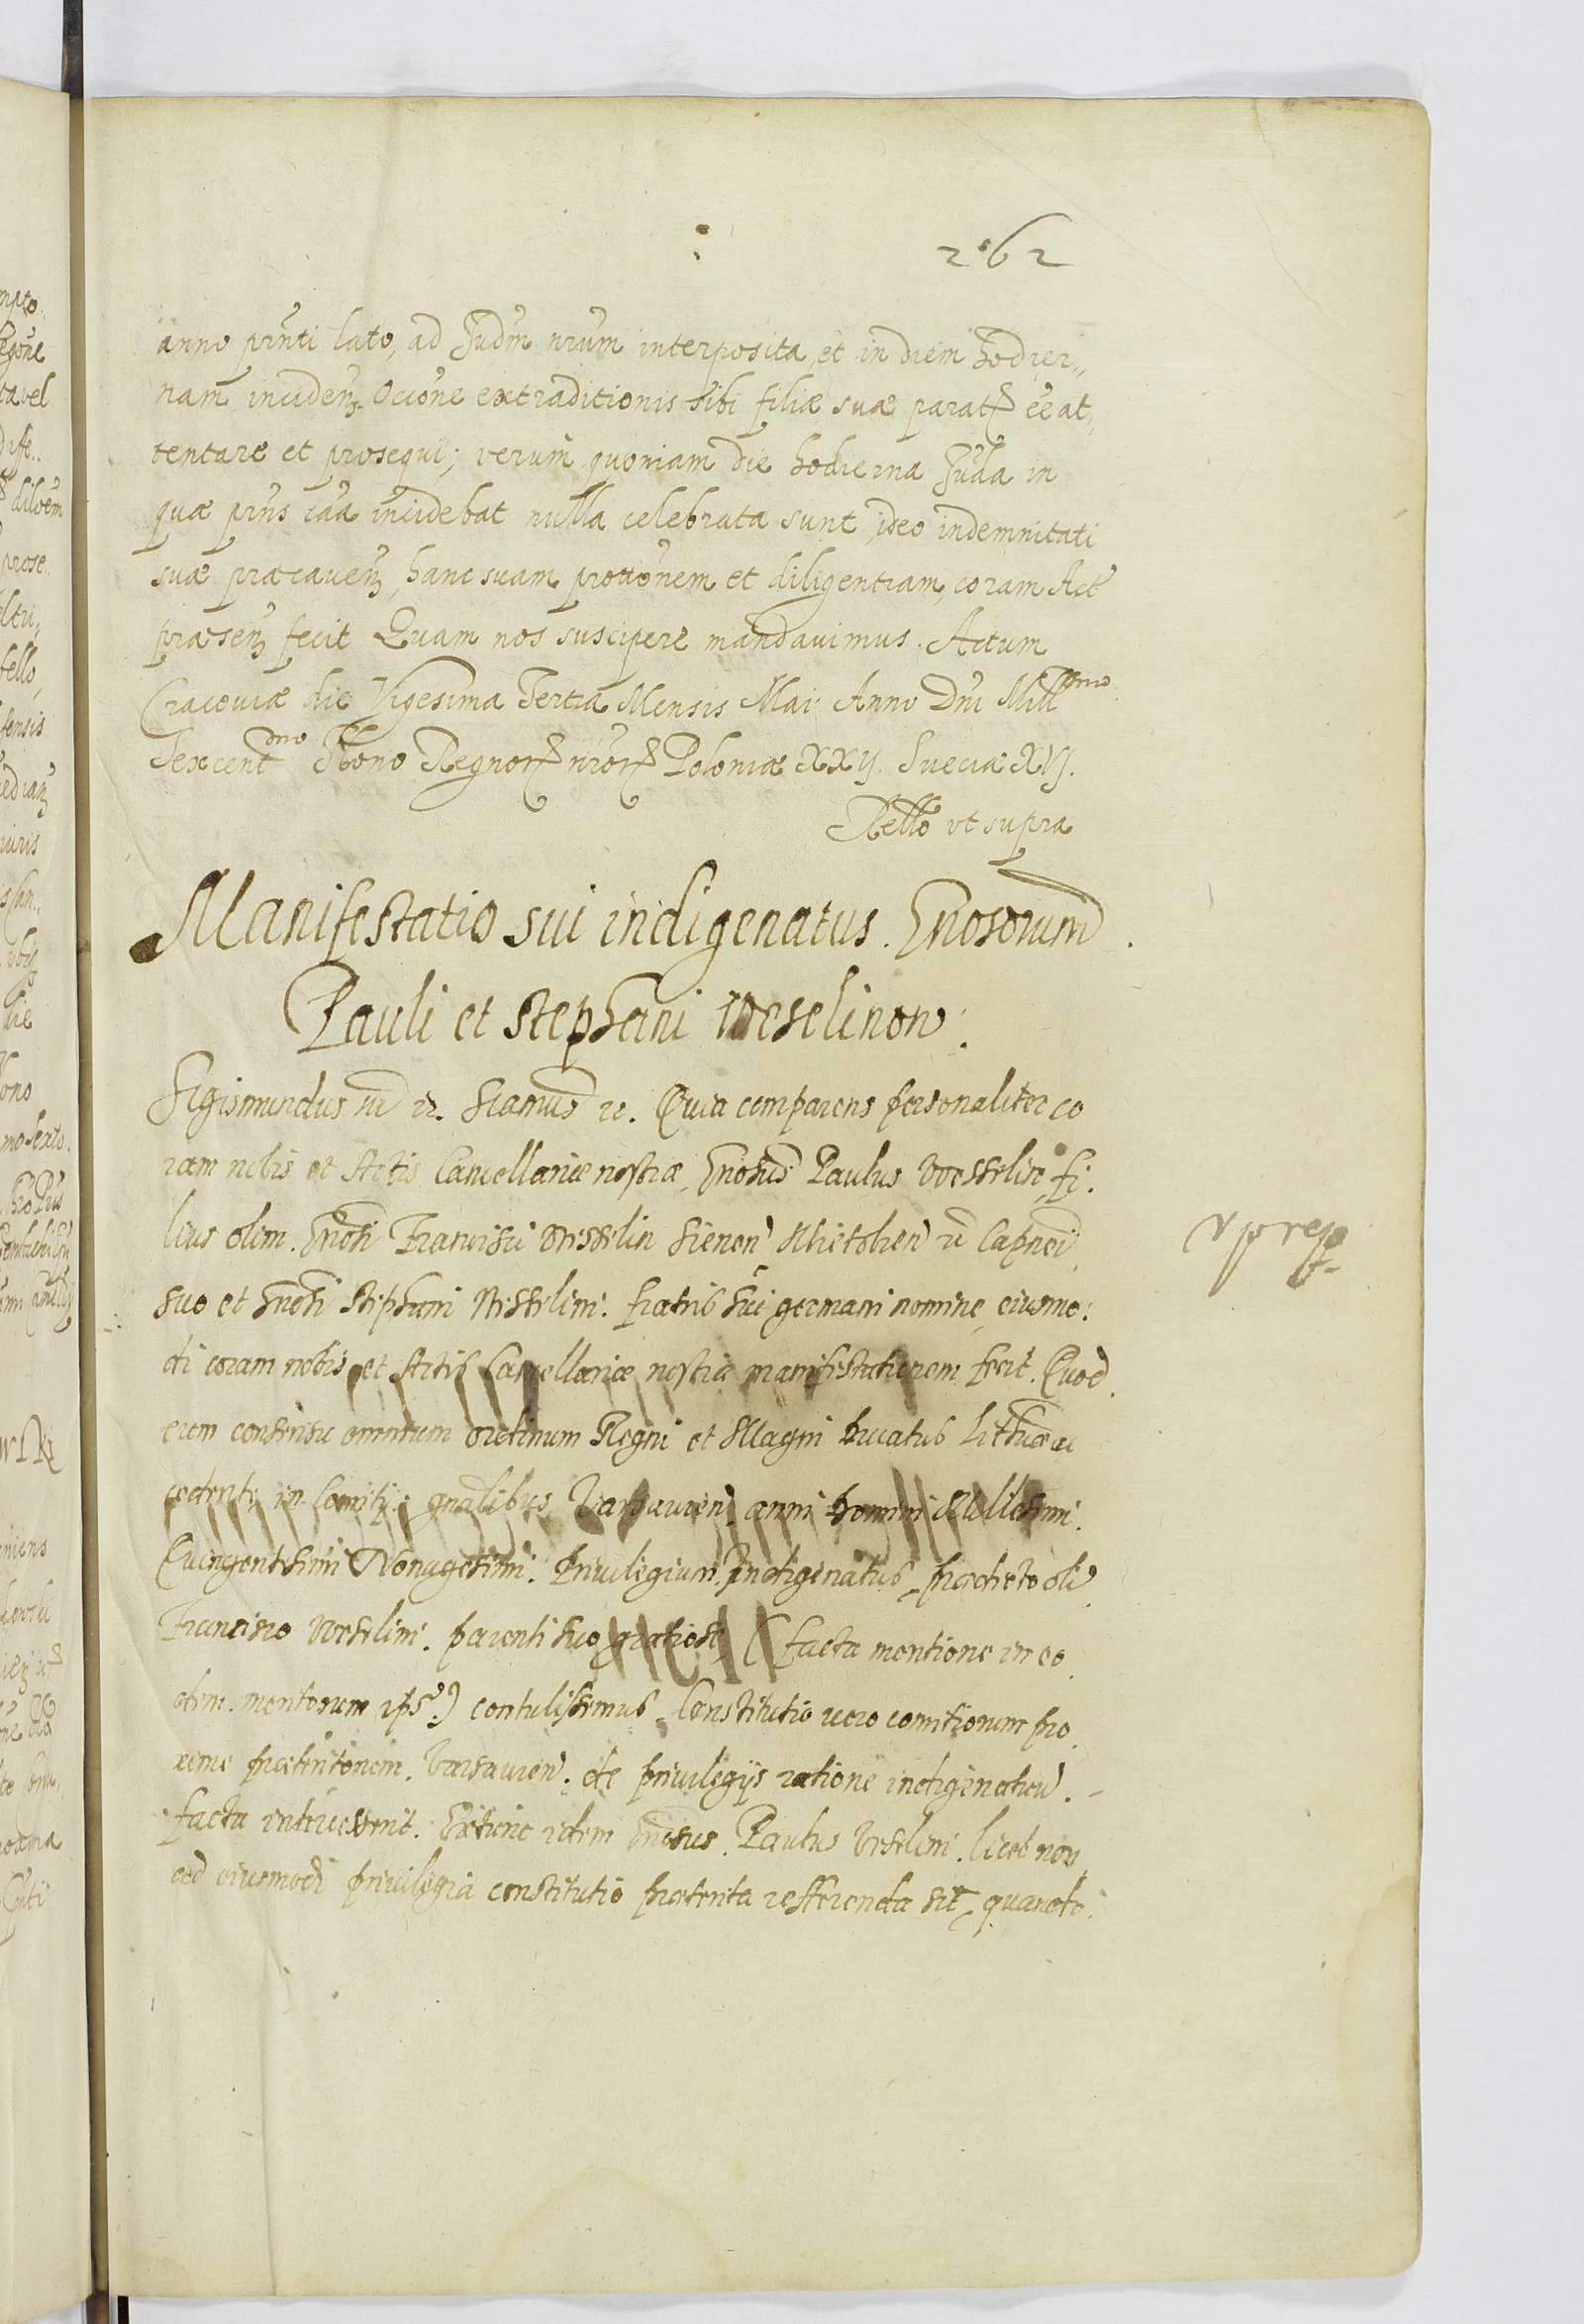 262
anno pñti lato, ad Judm nrum interposita, et in diem hodier„
nam inciden. Occõne extraditionis sibi filiæ suæ parat ẽe at„
tentare et prosequi; verum quoniam die hodierna Juda in
quæ pñs cãa incidebat nulla celebrata sunt, ideo indemnitati
suæ præcaven, hanc suam prottõnem et diligentiam, coram Act
præsen fecit Quam nos suscipere mandavimus. Actum
Cracoviæ die Vigesima Tertia Mensis Maii Anno Dñi Mill͂mo
Sexcent͂mo Nono Regnor nror Poloniæ XXij. Sueciæ XVj.
Rello vt supra
Manifestatio sui indigenatus. Gnosorum
Pauli et Stephani Weselinow.
Sigismundus iii rc. Sign. rc. Quia comparens personaliter co
ram nobis et Actis Cancellariæ nostræ, Gnosus Paulus Wesselin, fi.
lius olim. Gnosi Francisci Wesselin Capnei,
suo et Gnosi Stephani Wesselini. fratris sui germani nomine, eiusmo:
di coram nobis et Actis Cancellariæ nostræ manifestationem fecit. Quod
cum consensu omnium ordinum Regni et Magni Ducatus Lithuaniæ
in Comitijs gnalibus Varsavien. anni Domini Millesimi.
Quingentesimi Nonagesimi. Privilegium Indigenatus, prædicto oli
Francisco Weselini. parenti suo gratiose, (facta mentione in eo
dem. meritorum ips.) contulissemus. Constitutio vero comitiorum pro
xime præteritorum. Varsavien. de privilegijs ratione indigenatuu.
facta intervenerit. Extunc idem Gnosus. Paulus Weselini. licet non
ad eiusmodi privilegia constitutio præterita refferenda sit, quando.